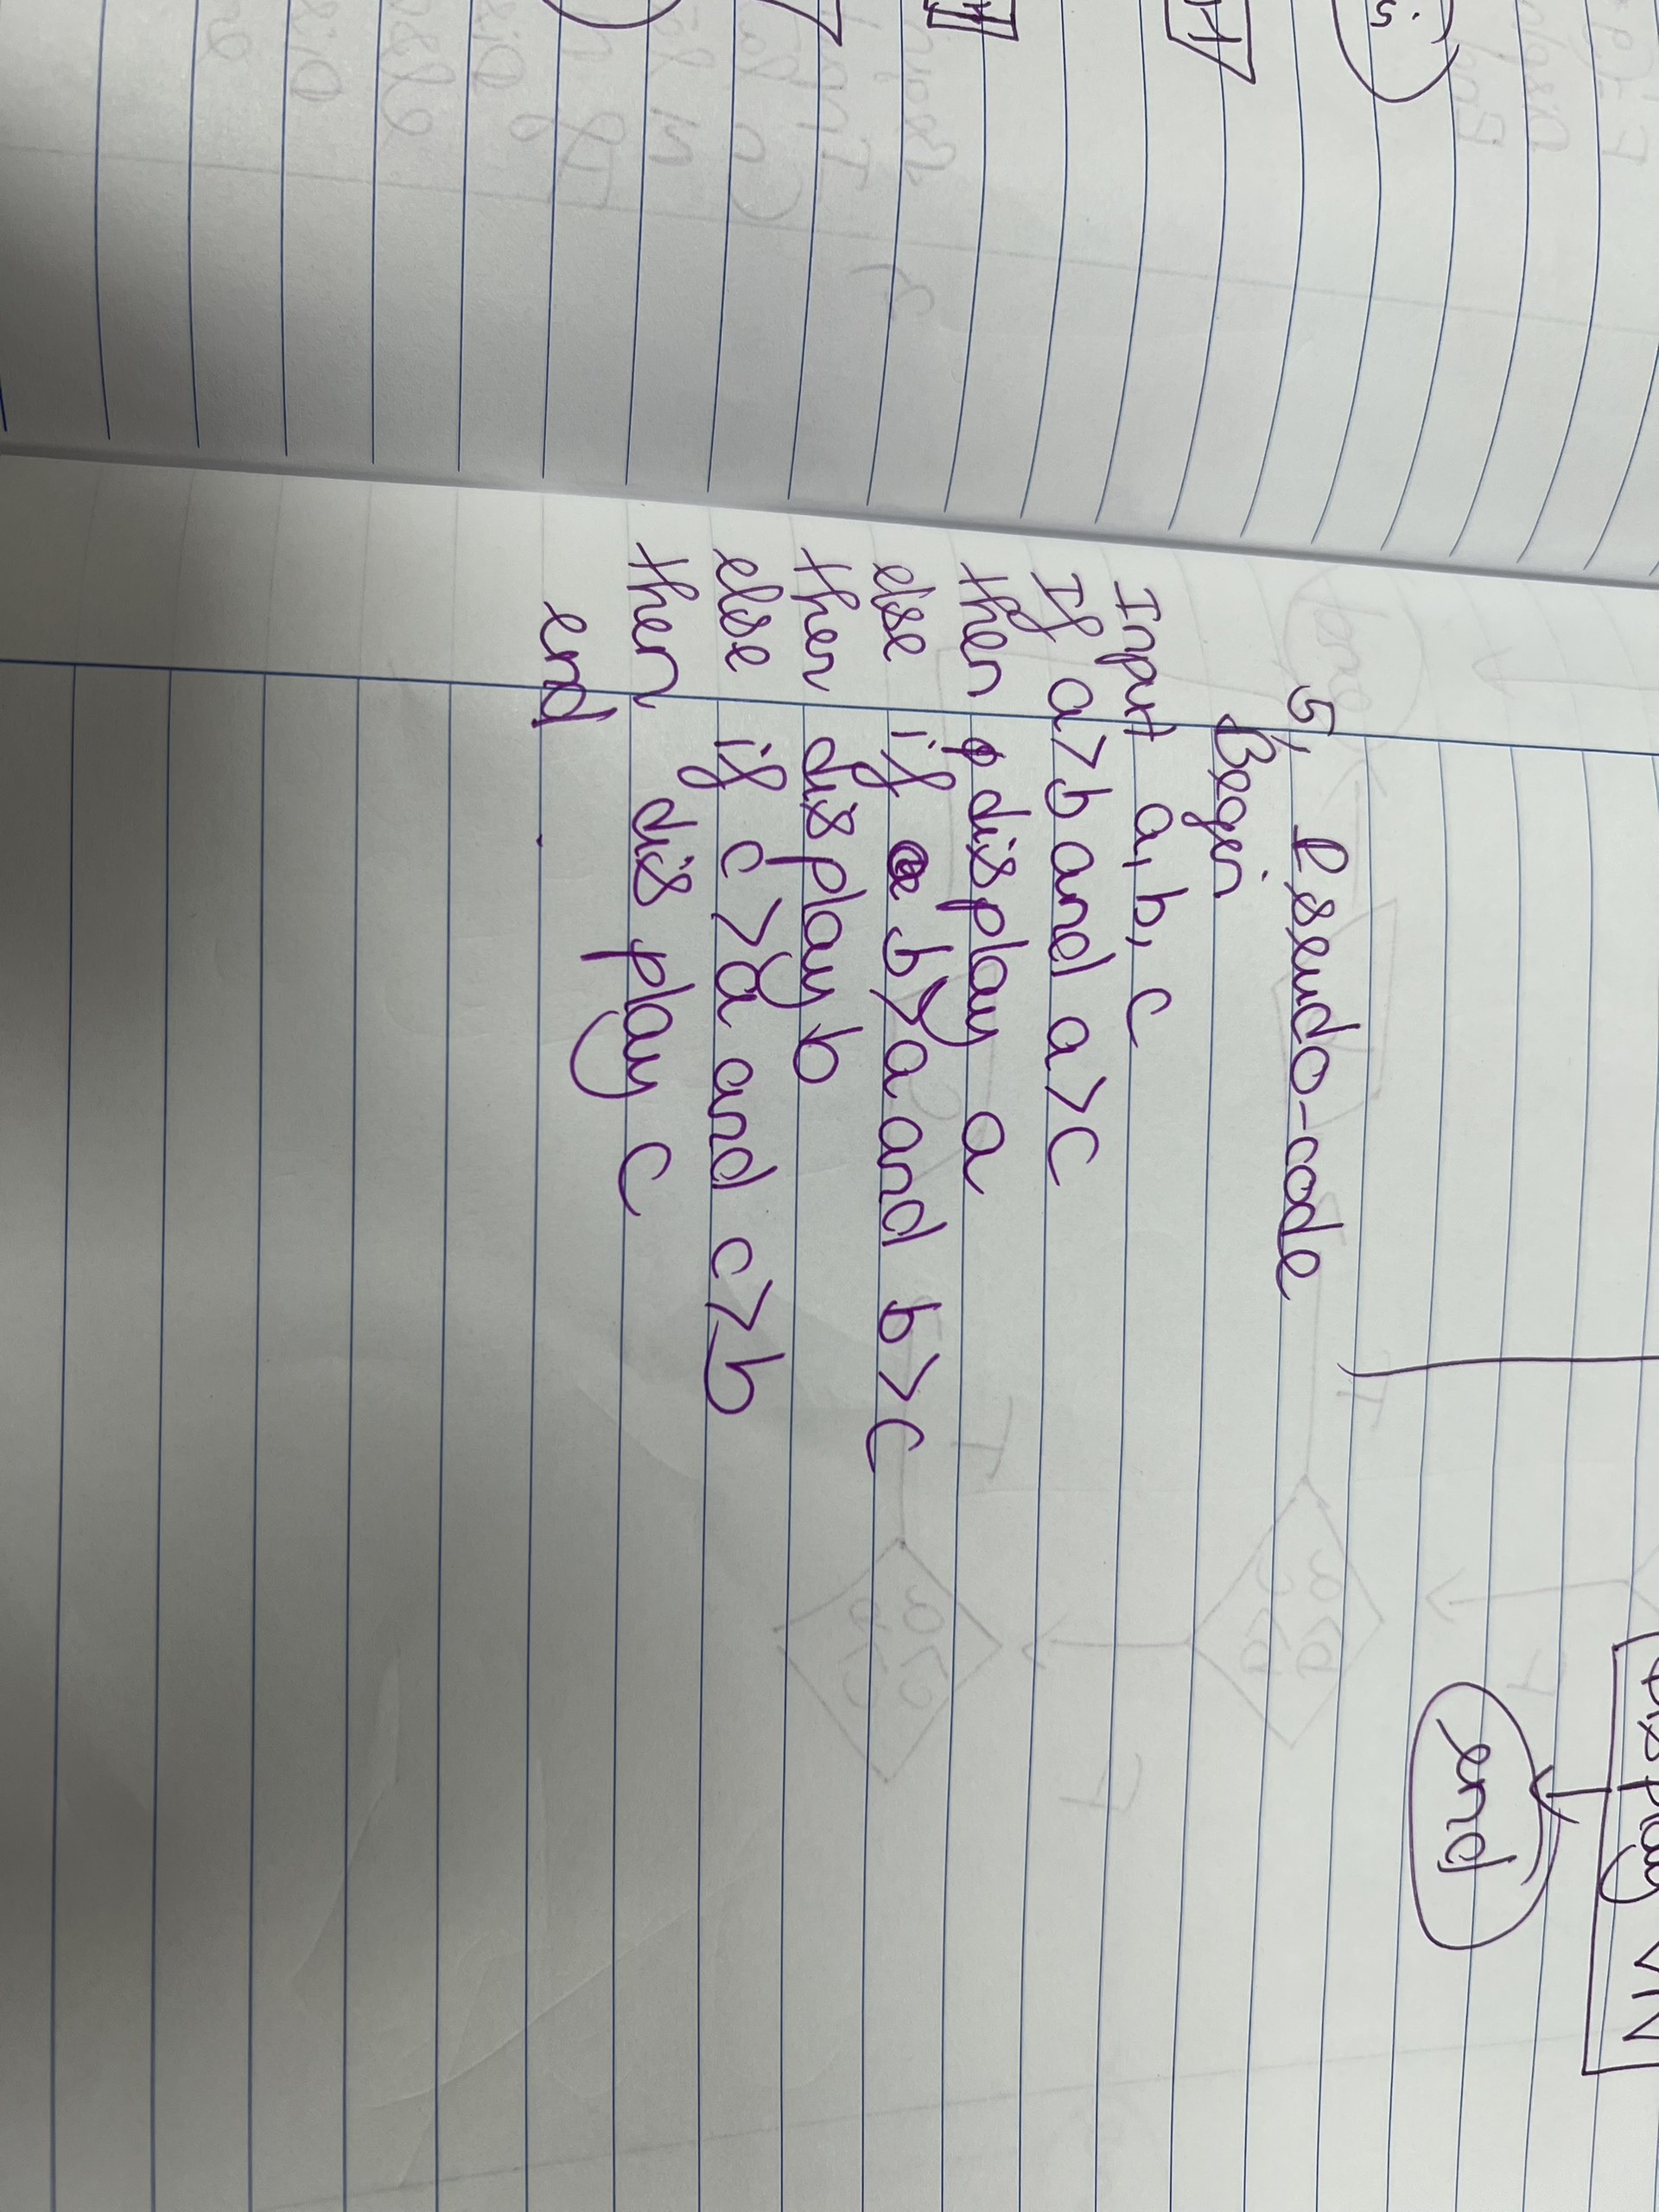 5, Pseudo-code
Begin
Input a, b, c
If a>b and a>c
then display a
else if b>a and b>c
then display b
else if c>a and c>b
then display c
end
Display VN
end